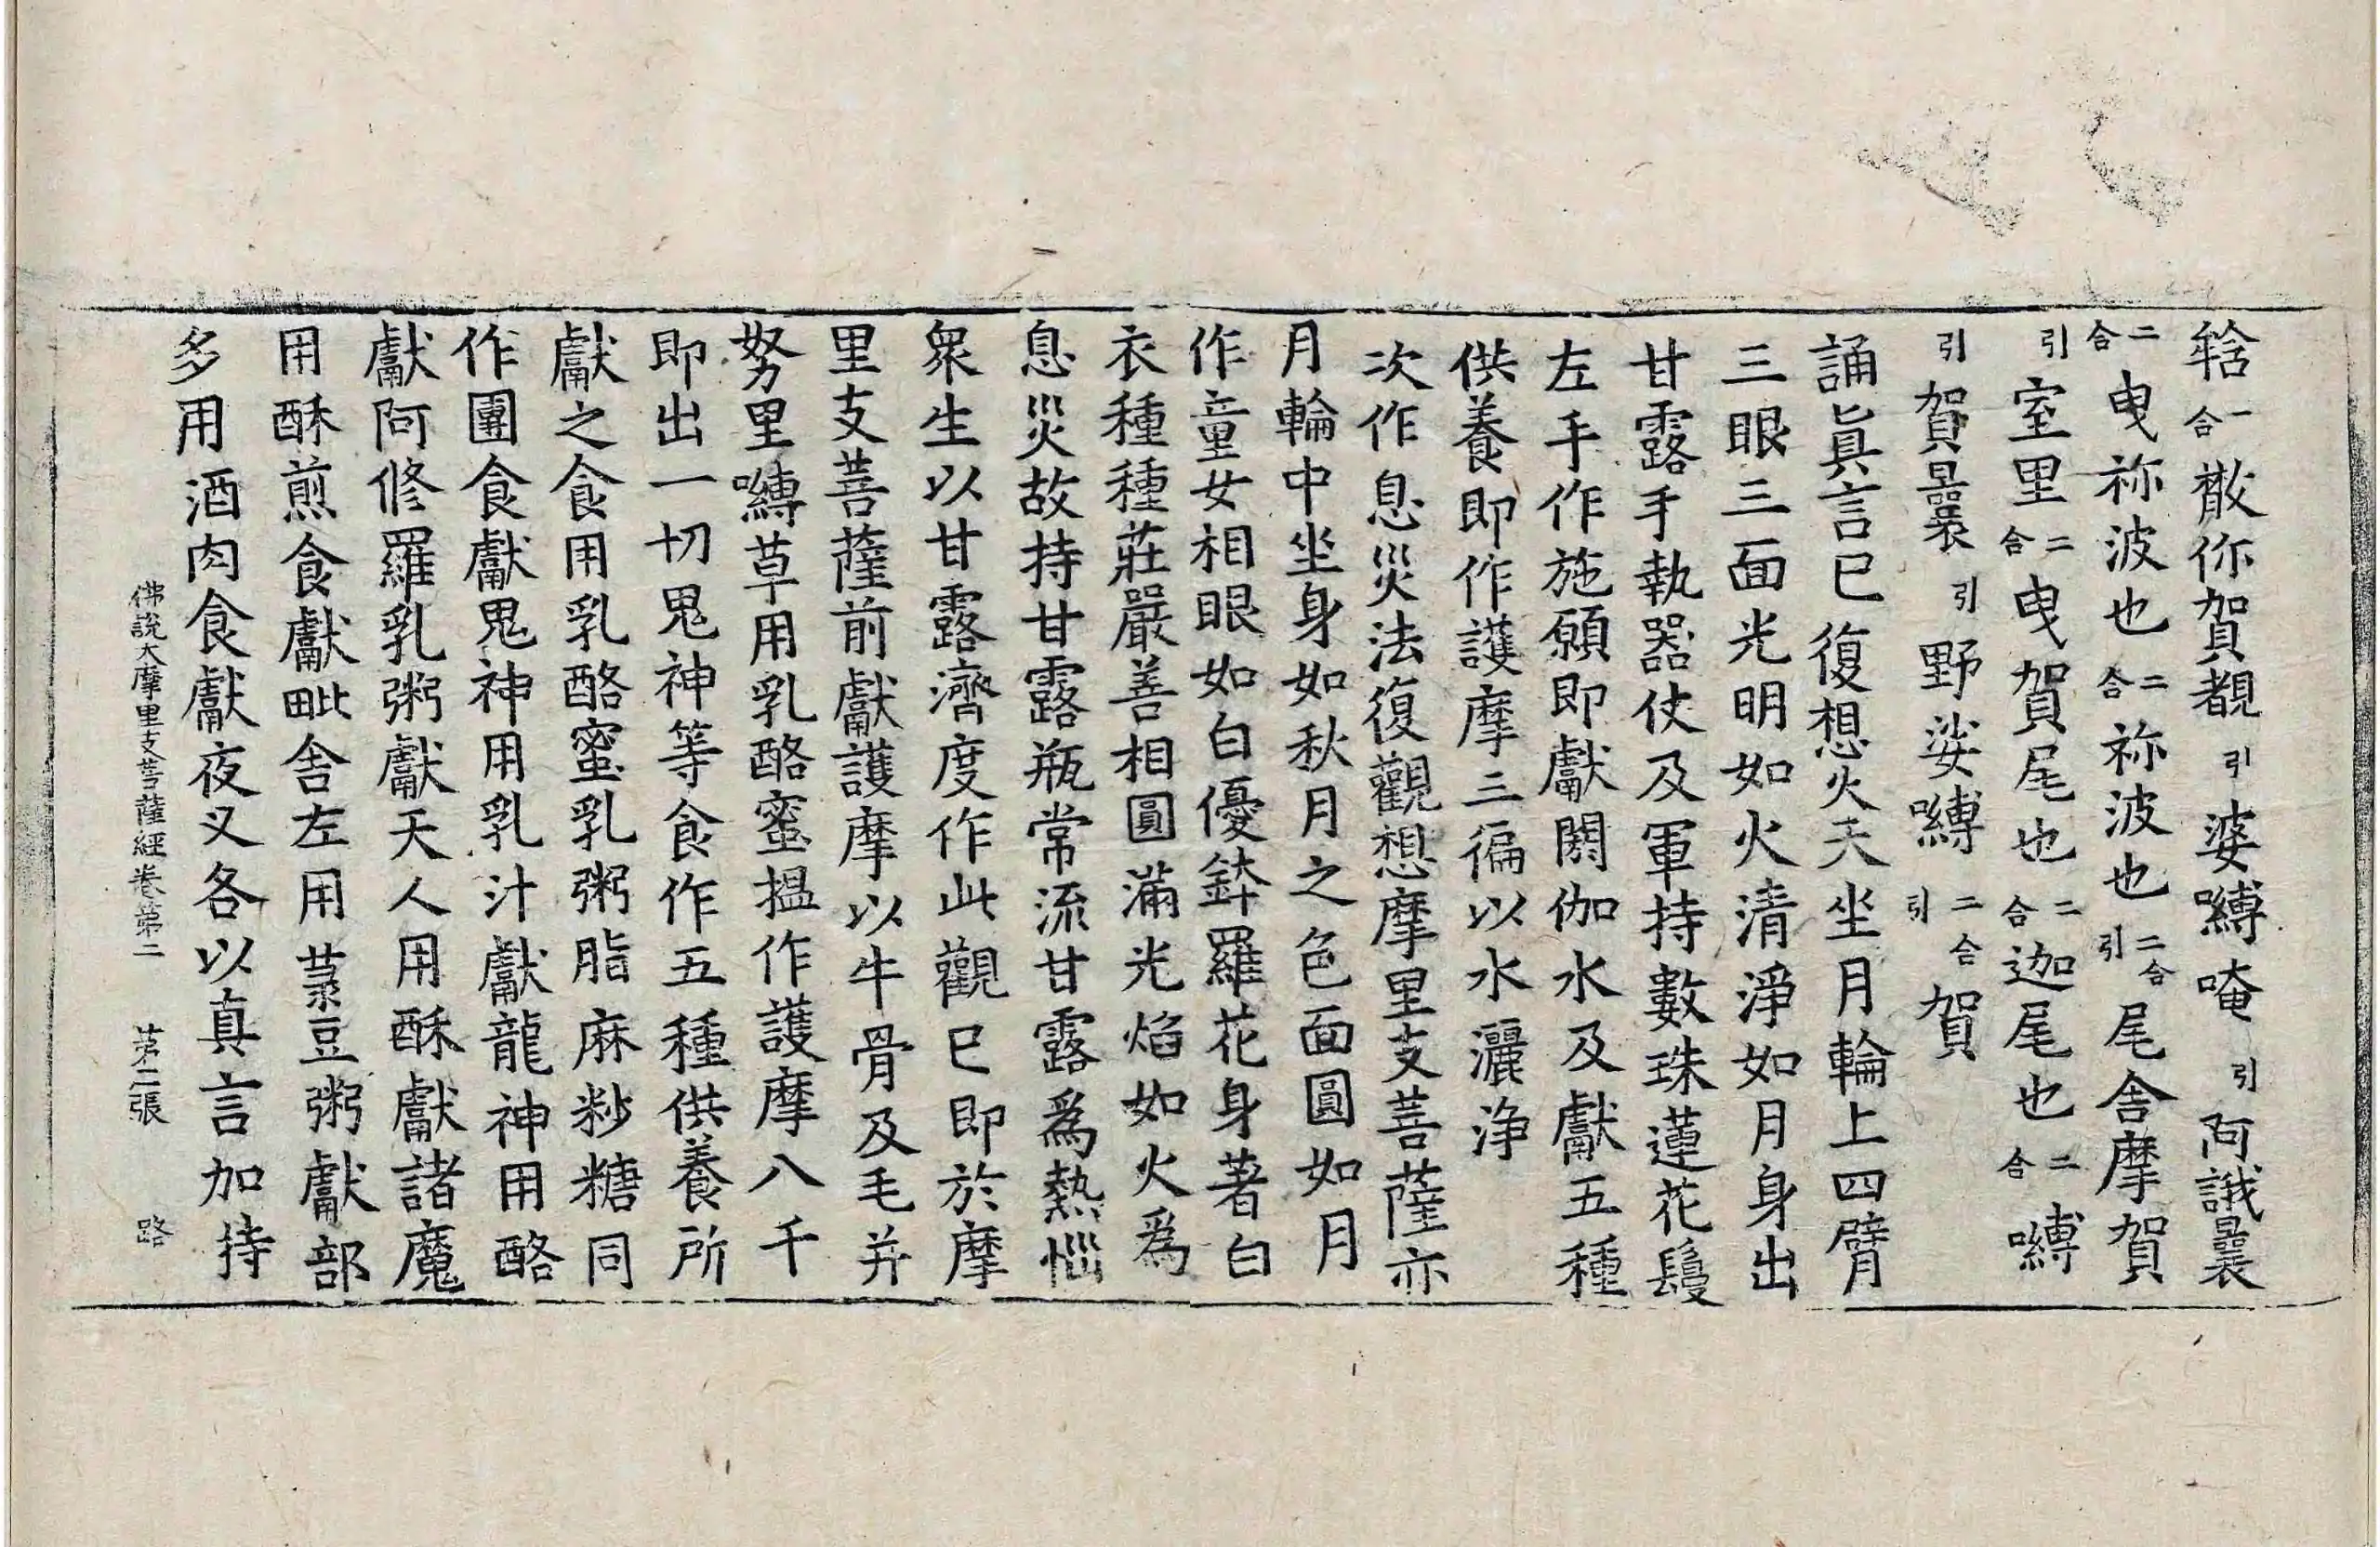 㸿一合㪚伱賀覩引娑嚩唵引阿誐曩
二合曳祢波也二合祢波也二合引尾舍摩賀
引室里二合曳賀尾也二合迦尾也二合嚩
引賀曩引野娑嚩二合引賀
誦眞言已復想火天坐月輪上四臂
三眼三面光明如火清淨如月身出
甘露手執器仗及軍持數珠蓮花鬘
左手作施願即獻閼伽水及獻五種
供養即作護摩三徧以水灑淨
次作息災法復觀想摩里支菩薩亦
月輪中坐身如秋月之色面圓如月
作童女相眼如白優鉢羅花身著白
衣種種莊嚴善相圓滿光焰如火爲
息災故持甘露瓶常流甘露爲熱惱
衆生以甘露濟度作此觀已即於摩
里支菩薩前獻護摩以牛骨及毛并
努里嚩草用乳酪蜜搵作護摩八千
即出一切鬼神等食作五種供養所
獻之食用乳酪蜜乳粥脂麻粆糖同
作團食獻鬼神用乳汁獻龍神用酪
獻阿修羅乳粥獻天人用酥獻諸魔
用酥煎食獻毗舍左用菉豆粥獻部
多用酒肉食獻夜叉各以真言加持
佛說大摩里支菩薩經卷第二 第二張 路